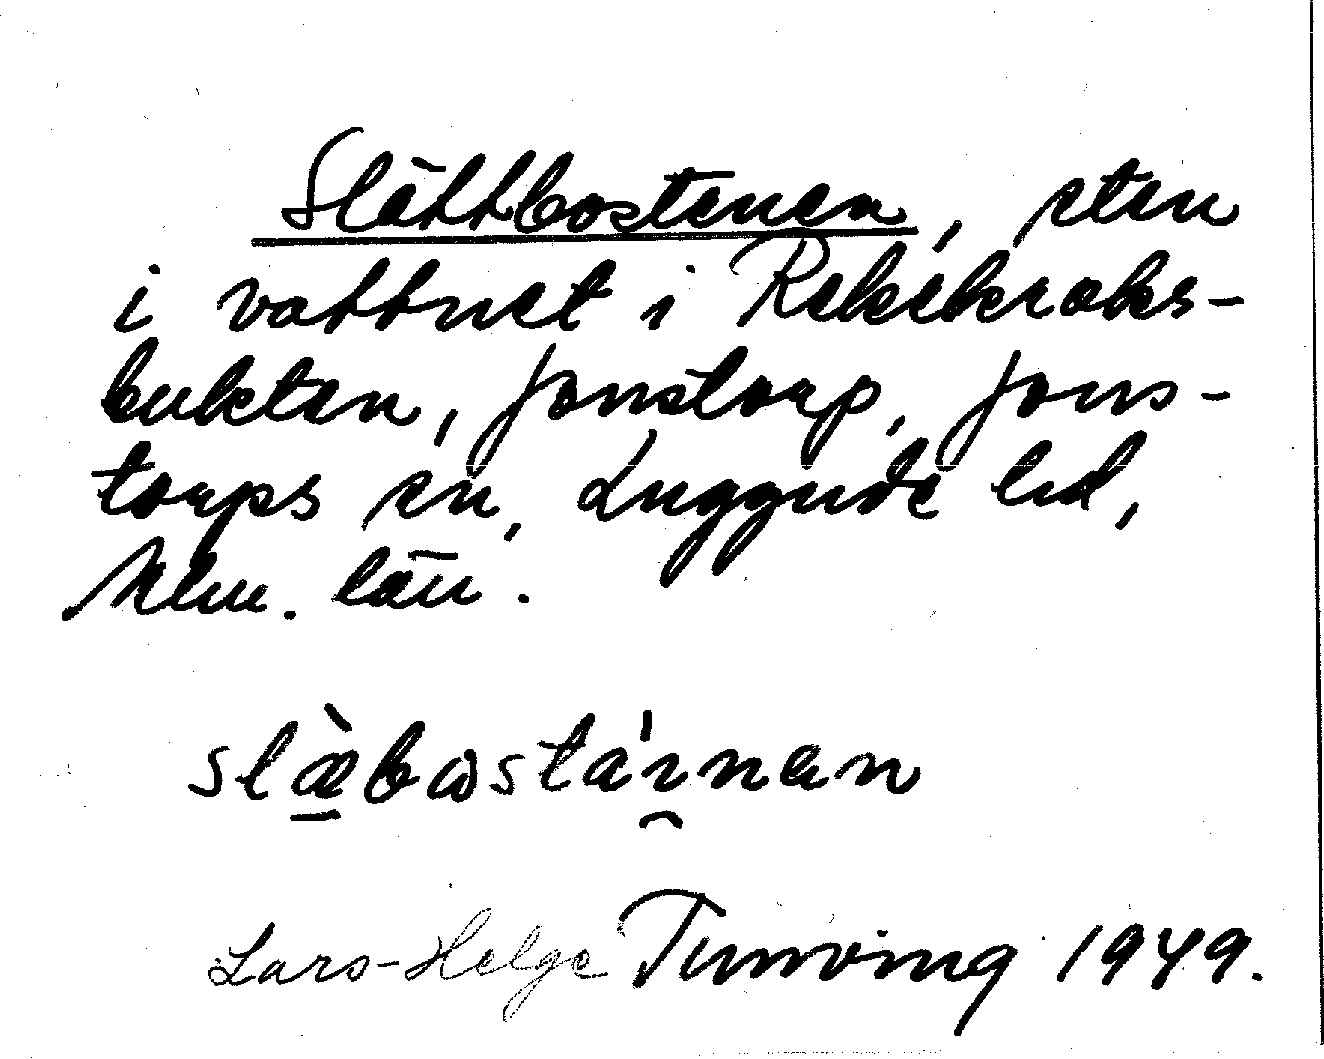 Slättbostenen, sten
i vattnet i Rekekroks-
bukten, Jonstorp, Jons-
torps sn, Luggude hd,
Mlm. län.
slæ̀bωstáınan
Lars-Helge Tunving 1949.